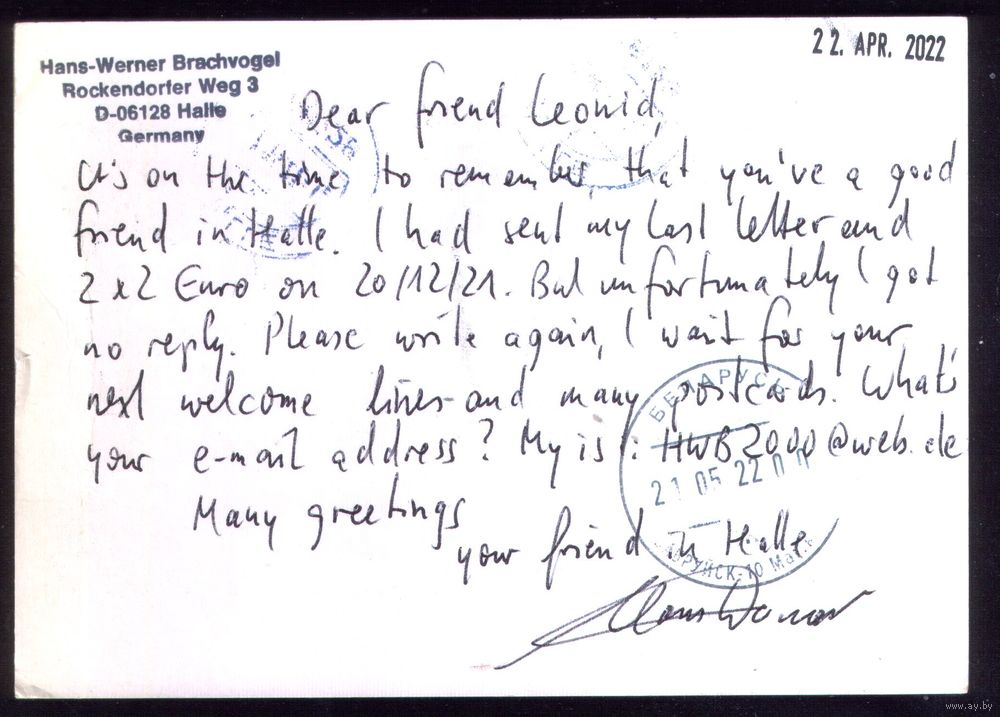 Hans-Werner Brachvogel
Rockendorfer Weg 3
D-06128 Halle
Germany
22. APR. 2022
Dear friend Leonid,
It's on the time to remember, that you've a good
friend in Halle. I had sent my last letter and
2x2 Euro on 20/12/21. But unfortunately I got
no reply. Please write again, I wait for your
next welcome lines and many postcards. What's
your e-mail address? My is: HWB2000@web.de
Many greetings
your friend in Halle
Hans-Werner
БЕЛАРУСЬ
21 05 22
www.ay.by